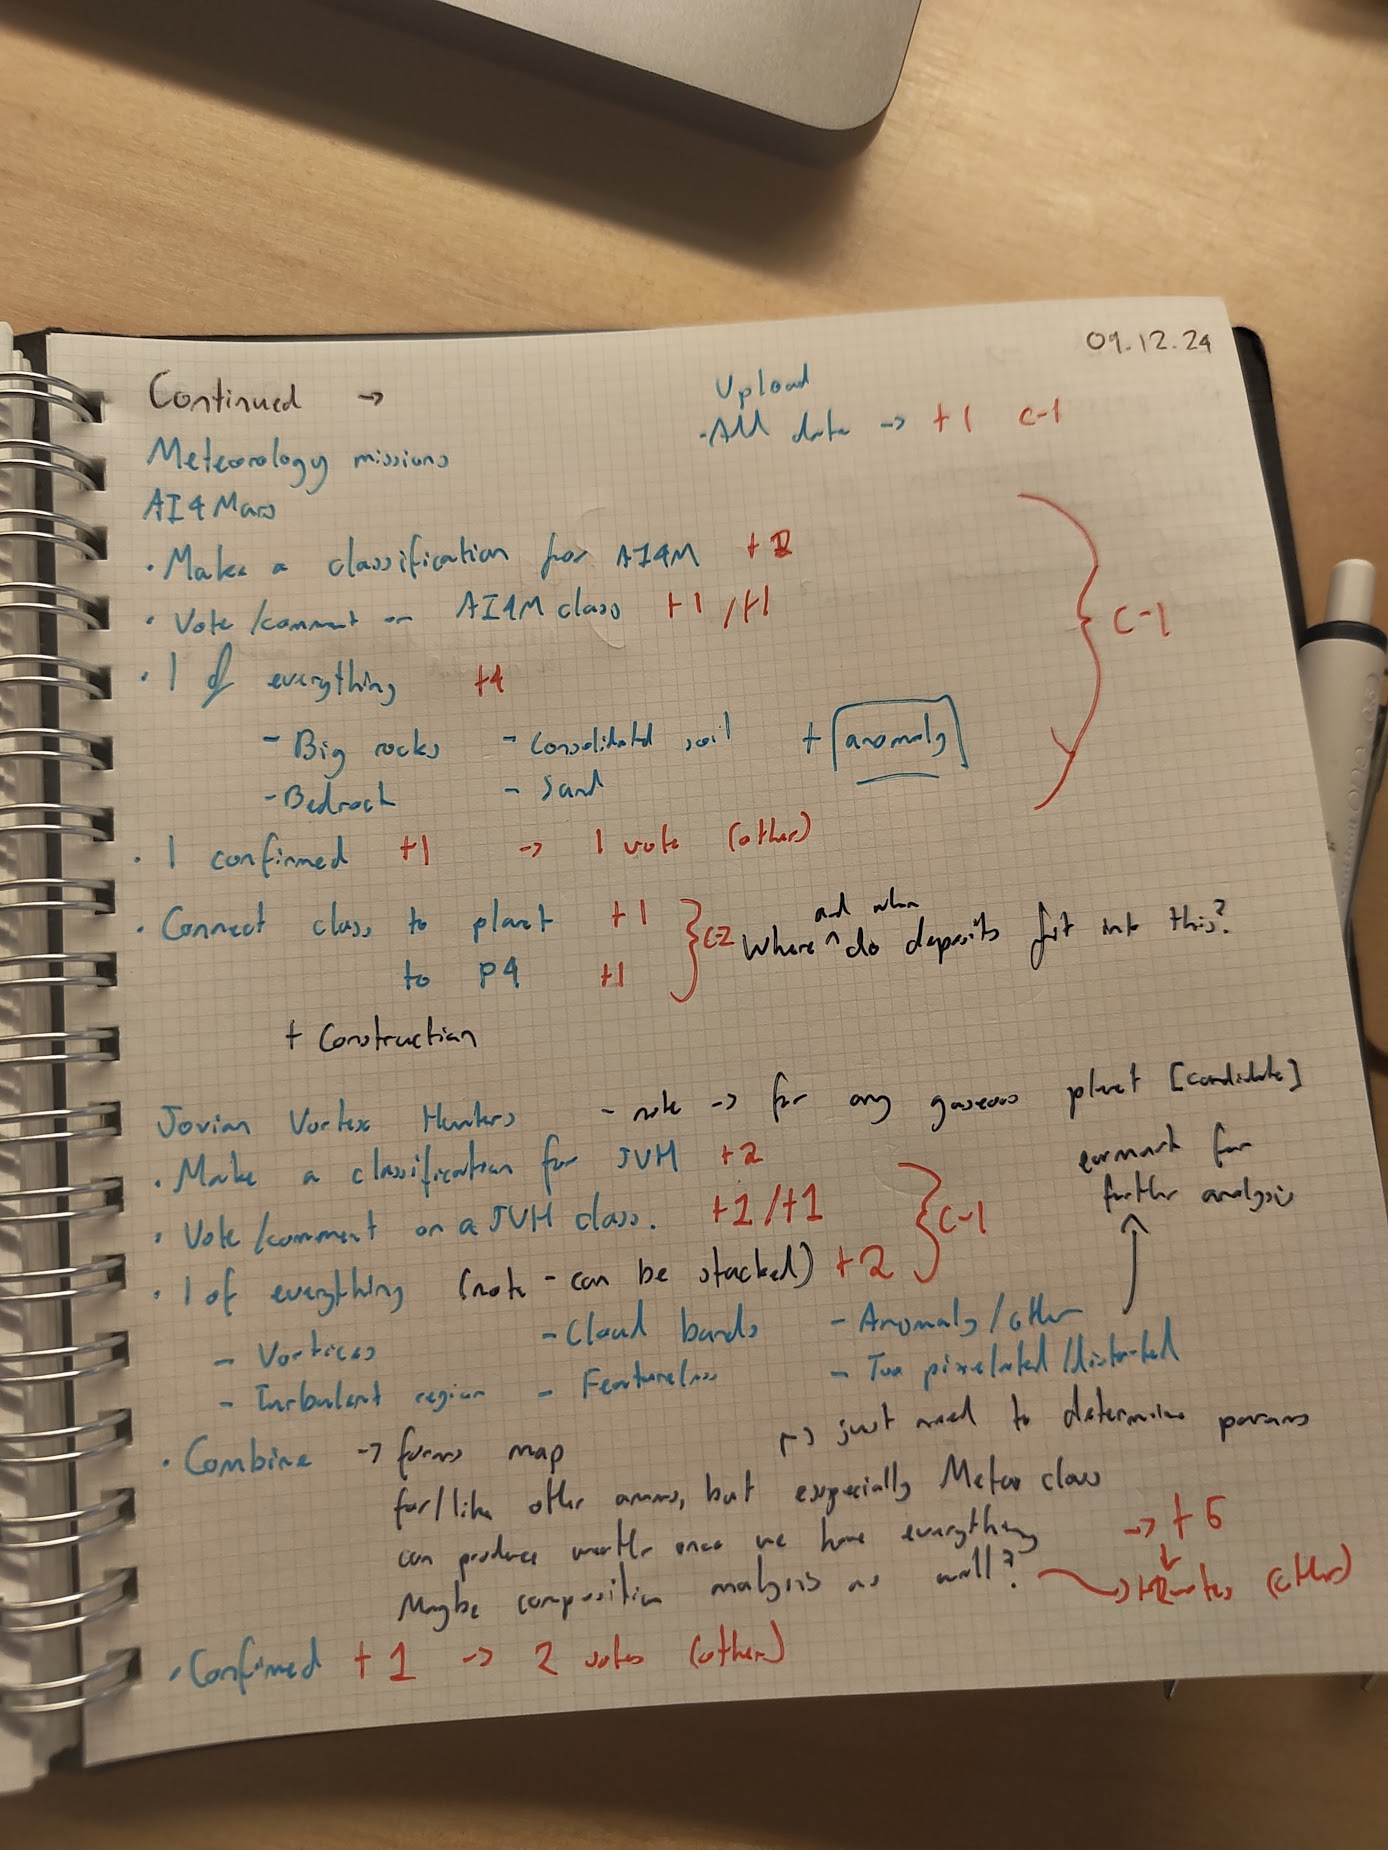 09.12.24
Continued →
Upload
· All data → +1 C-1
Meteorology missions
AI4Mars
· Make a classification for AI4M +2
· Vote/comment on AI4M class +1/+1
C-1
· 1 of everything +4
- Big rocks - Consolidated soil + anomaly
- Bedrock - Sand
· 1 confirmed +1 → 1 vote (other)
· Connect class to planet +1
to P4 +1
C-2
and when
Where ^ do deposits fit into this?
+ Construction
Jovian Vortex Hunters - note → for any gaseous planet [candidate]
· Make a classification for JVH +2
earmark for
further analysis
· Vote/comment on a JVH class. +1/+1
C-1
· 1 of everything (note - can be stacked) +2
- Vortices - Cloud bands - Anomaly/other
- Turbulent region - Featureless - Too pixelated/distorted
· Combine → forms map
→ just need to determine params
for/like other annos, but especially Meteo class
can produce once we have everything → +5
Maybe composition analysis as well? → votes (other)
· Confirmed +1 → 2 votes (other)